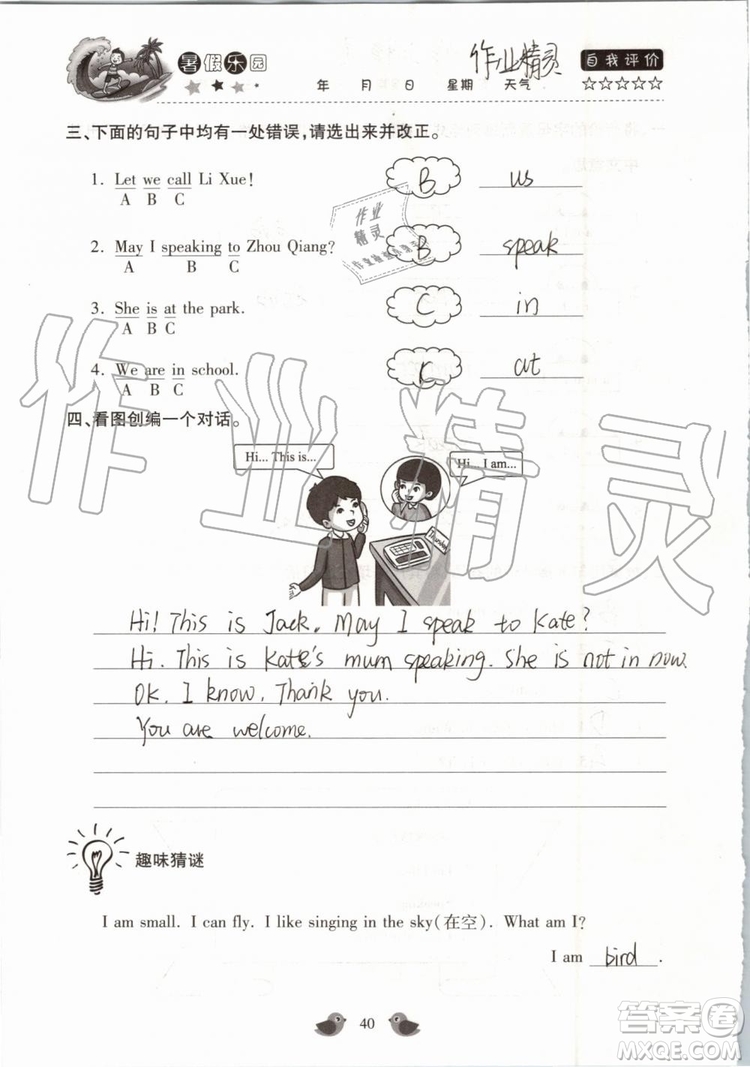 暑假乐园
作业精灵
自我评价
年 月 日 星期 天气 ☆☆☆☆☆
三、下面的句子中均有一处错误,请选出来并改正。
1. Let we call Li Xue! B us
A B C
2. May I speaking to Zhou Qiang? B speak
A B C
3. She is at the park. C in
A B C
4. We are in school. C at
A B C
作业
精灵
四、看图创编一个对话。
Hi... This is...
Hi... I am...
作业精灵
Hi! This is Jack. May I speak to Kate?
Hi. This is Kate's mum speaking. She is not in now.
OK. I know. Thank you.
You are welcome.
趣味猜谜
I am small. I can fly. I like singing in the sky(在空). What am I?
I am bird.
40
答案圈
MXQE.COM